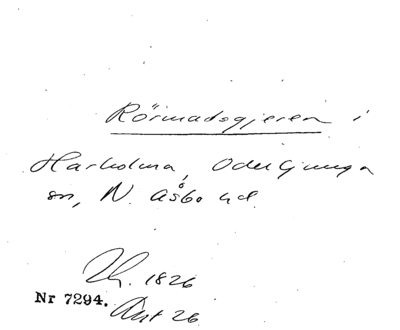 Rörmadsgjeren i
Harholma, Oderljunga
sn, N. Åsbo hd.
Lh. 1826
Nr 7294. Akt 26